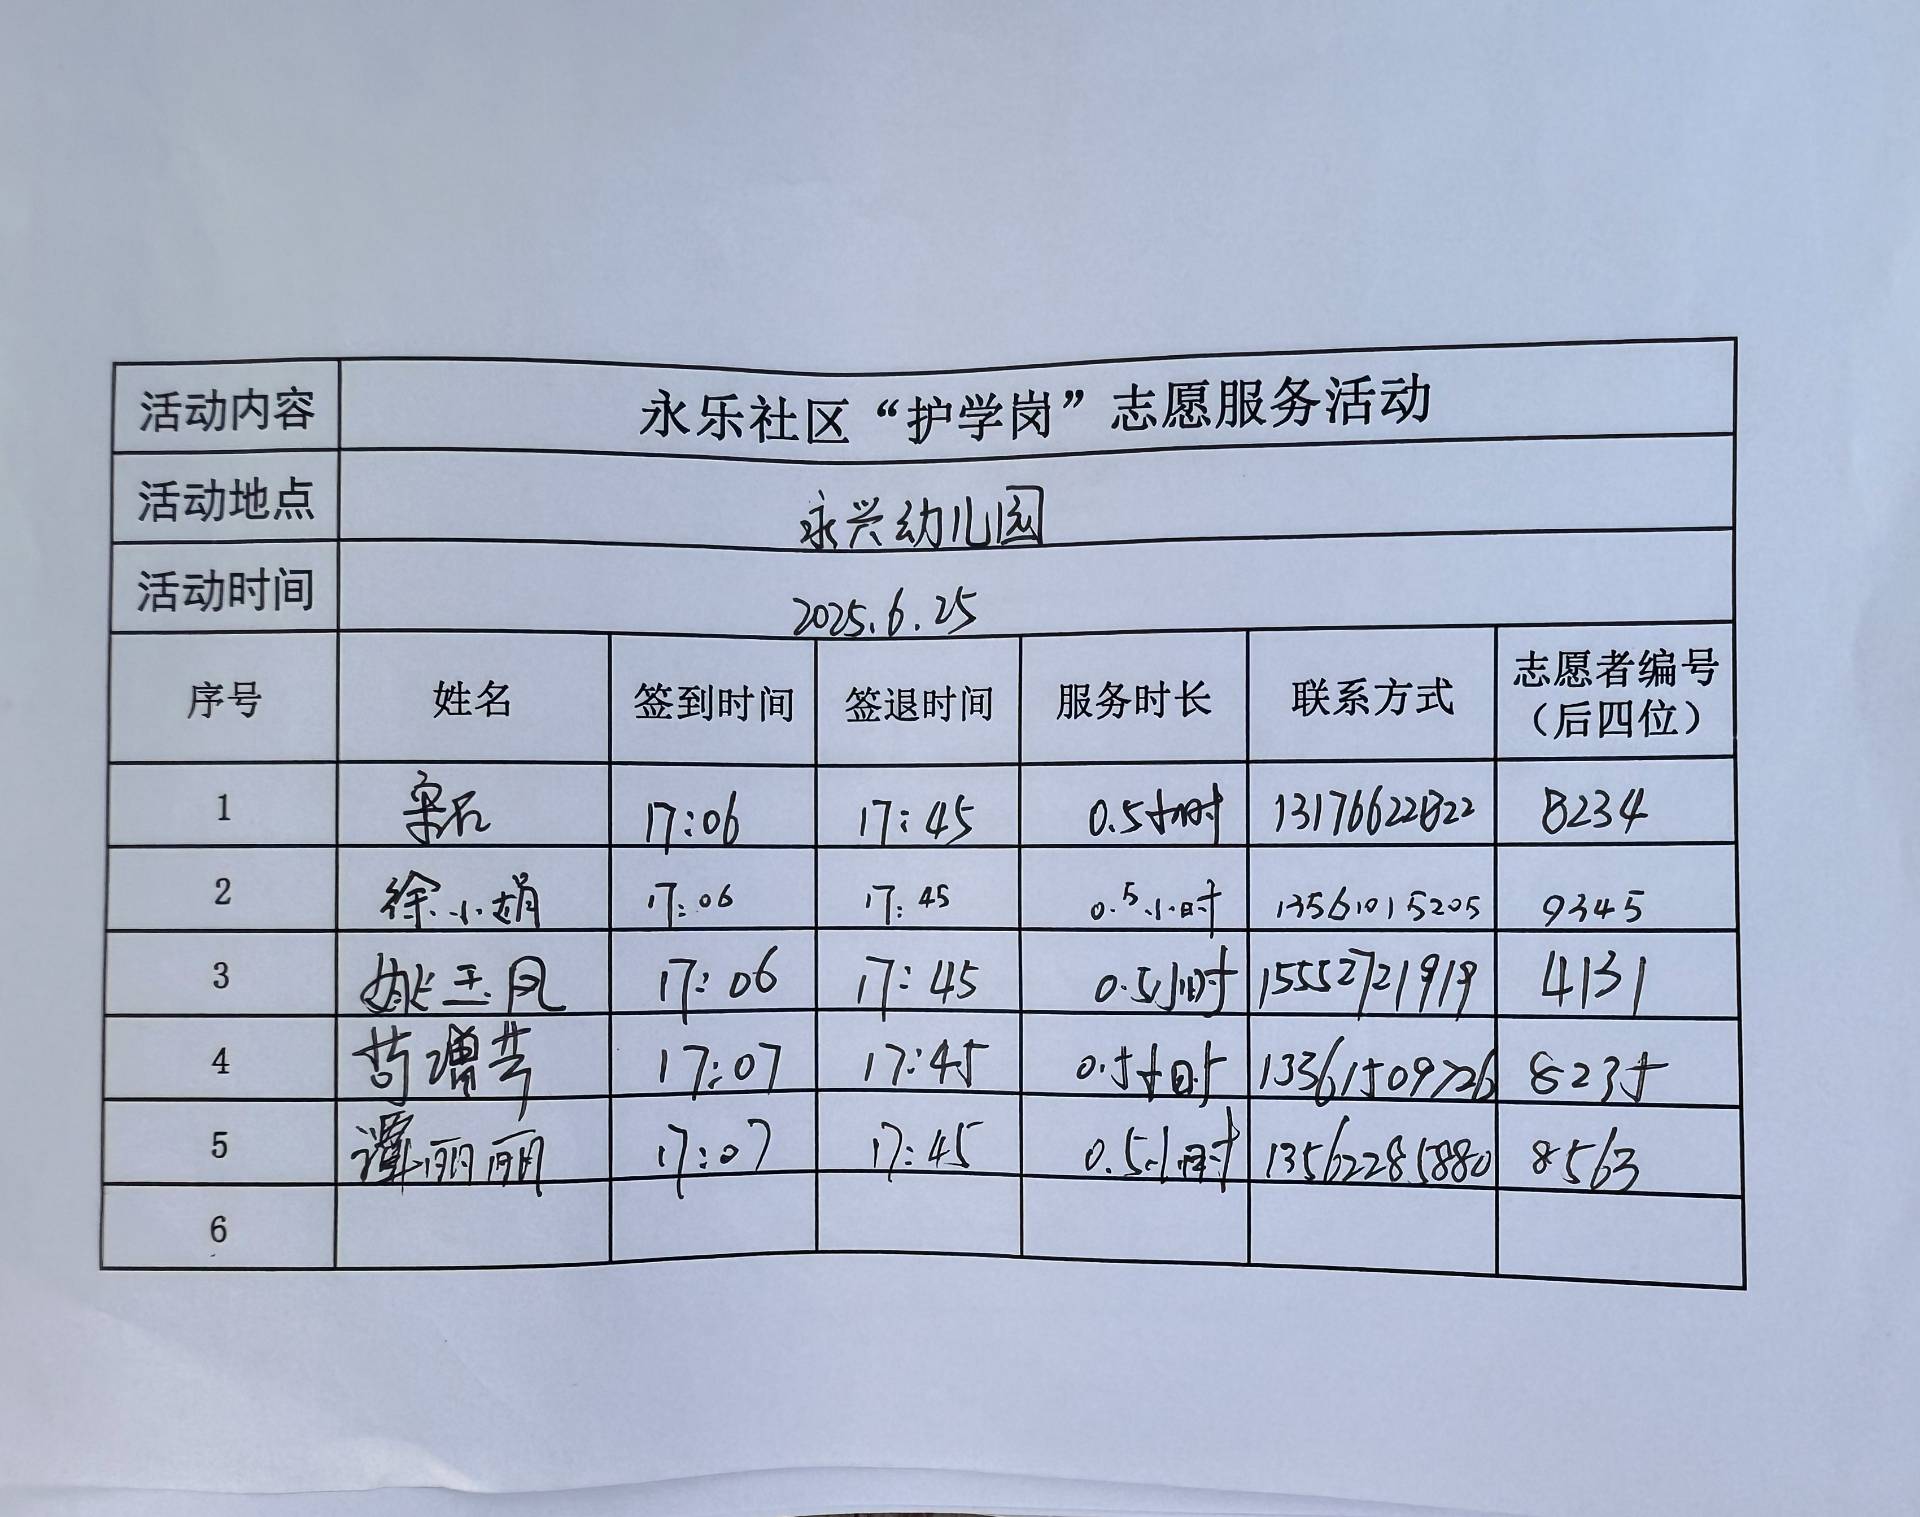 活动内容 永乐社区“护学岗”志愿服务活动
活动地点 永兴幼儿园
活动时间 2025.6.25
序号 姓名 签到时间 签退时间 服务时长 联系方式 志愿者编号（后四位）
1 17:06 17:45 0.5小时 13176622822 8234
2 徐小娟 17:06 17:45 0.5小时 13561015205 9345
3 姚玉凤 17:06 17:45 0.5小时 15552721919 4131
4 17:07 17:45 0.5小时 13361509726 8235
5 谭丽丽 17:07 17:45 0.5小时 13562285880 8563
6